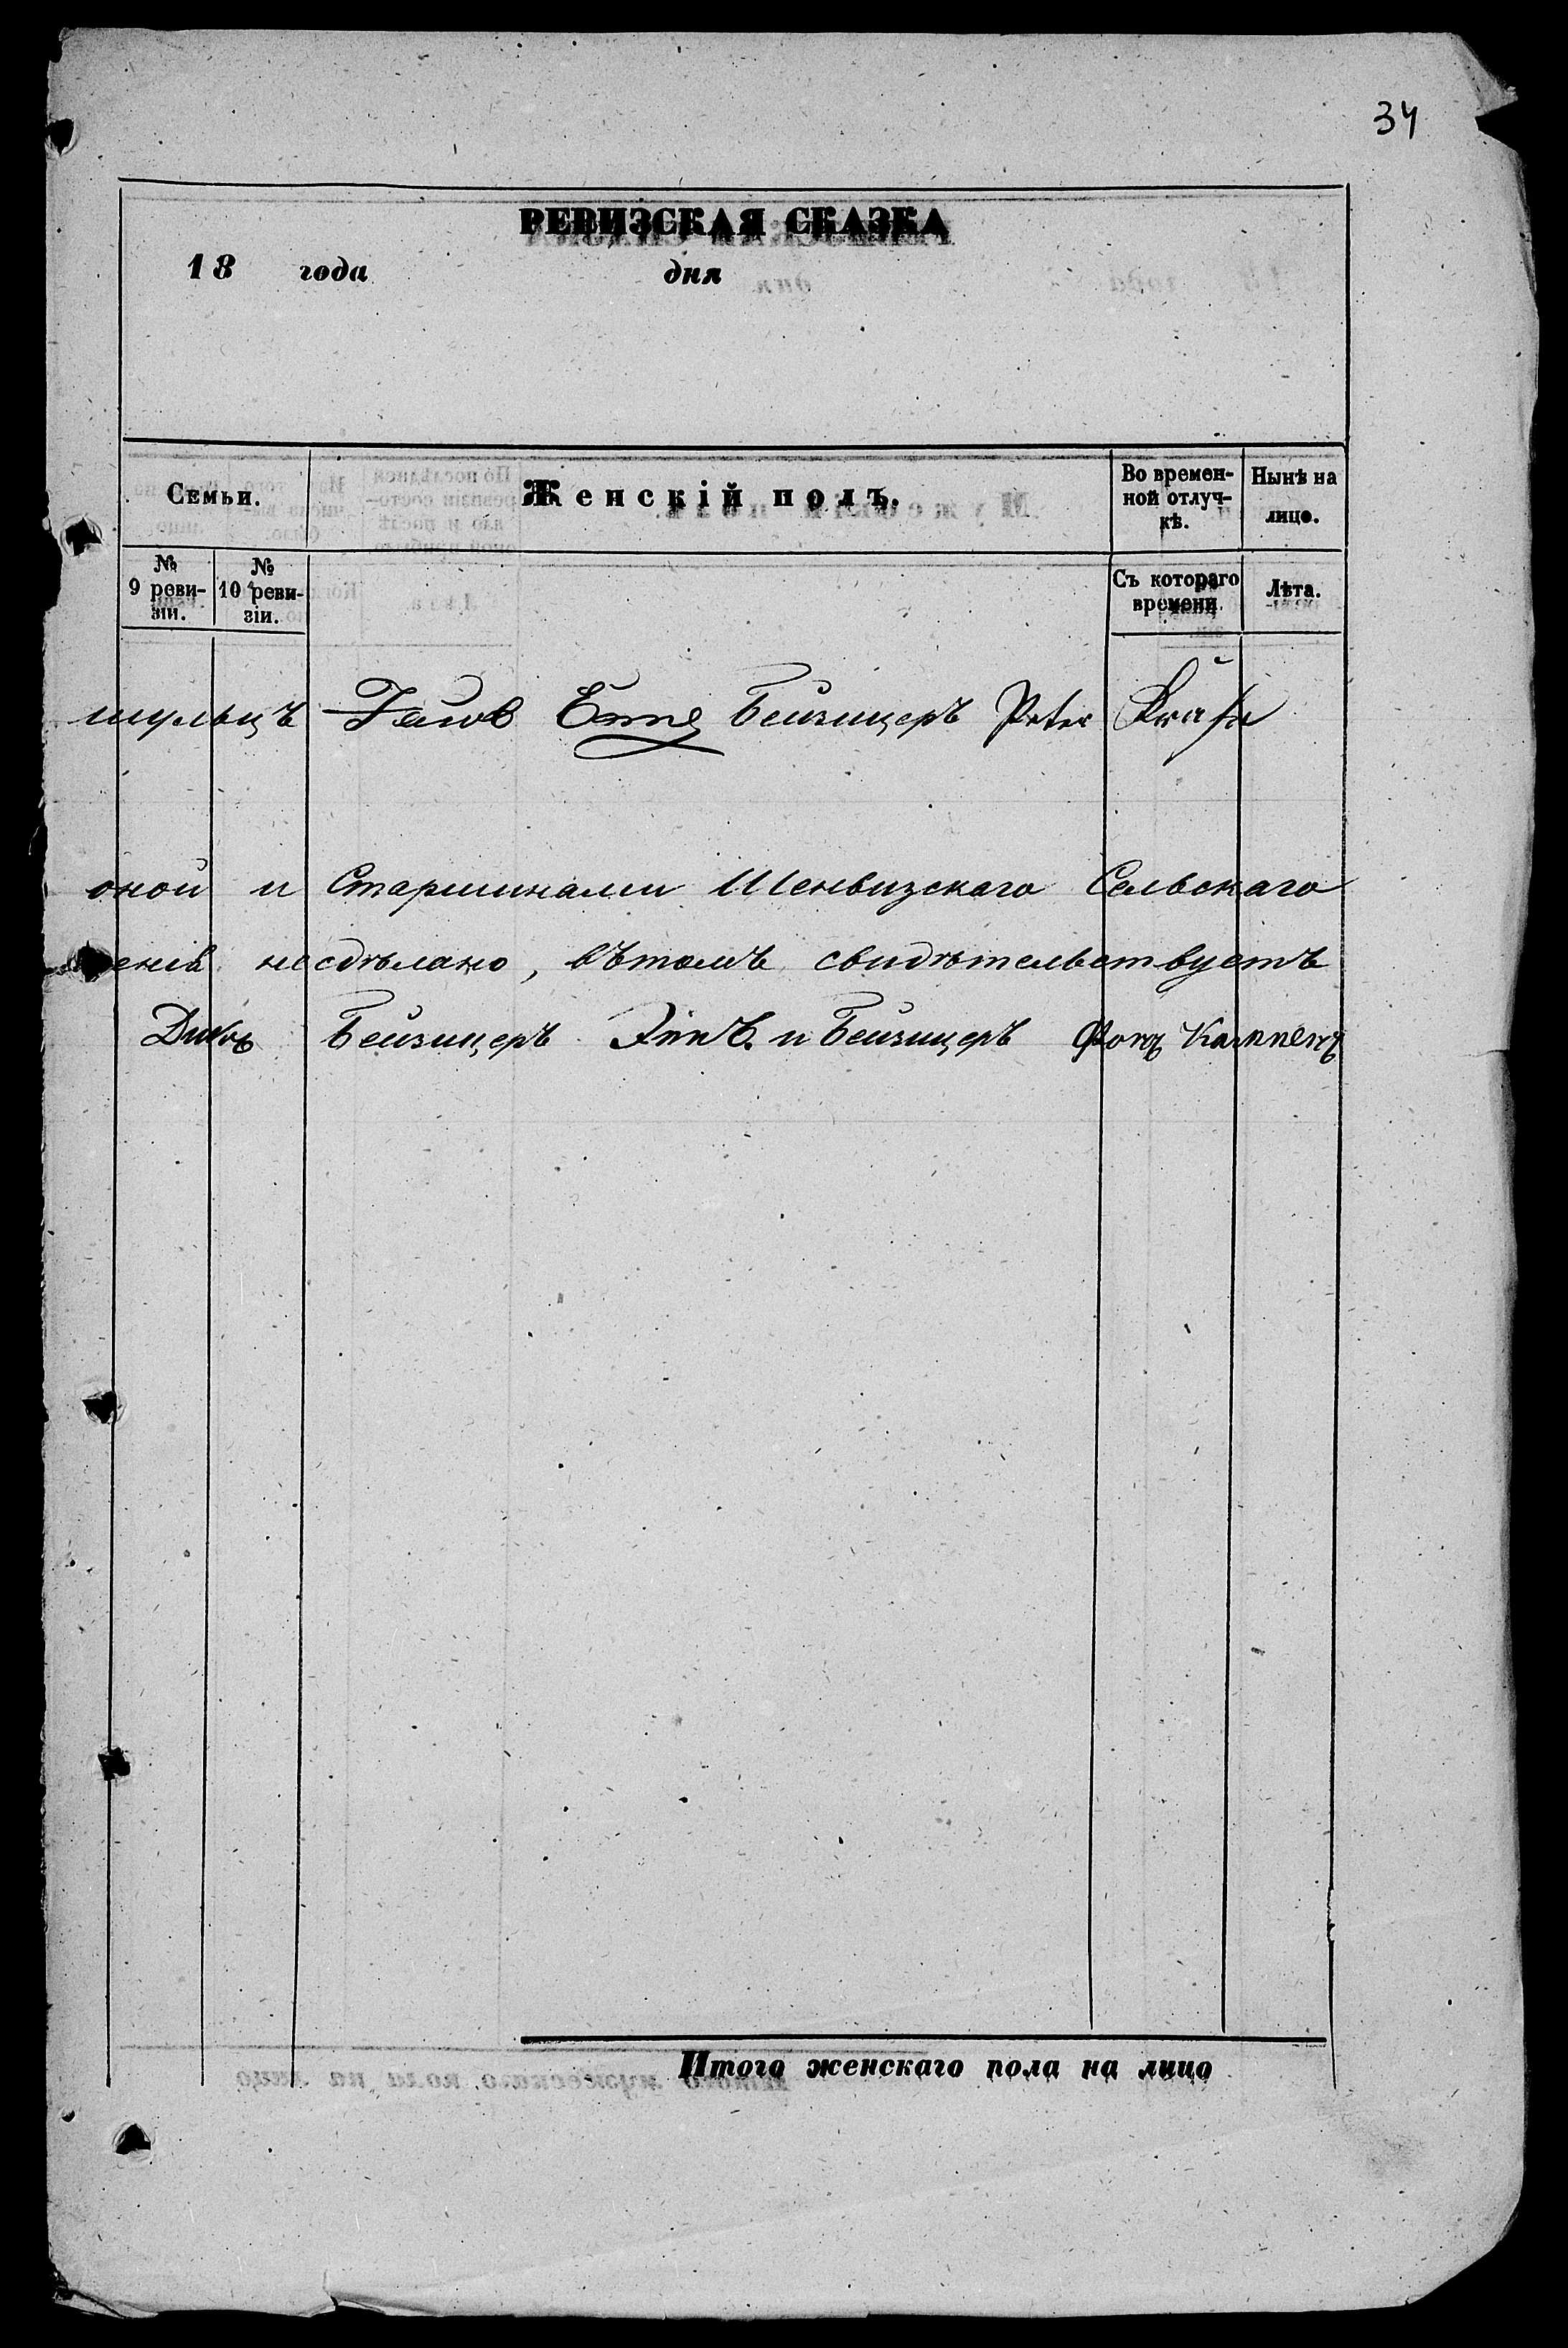 34
РЕВИЗСКАЯ СКАЗКА
18 года дня
Семьи. Женскій полъ. Во времен-ной отлуч-кѣ. Нынѣ на лицо.
№ 9 реви-зіи. № 10 реви-зіи. Съ котораго времени. Лѣта.
шульцъ Бейзицеръ Peter
оной и Старшинами Шенвизскаго Сельскаго
енія несдѣлано, вътомъ свидѣтельствуетъ
Бейзицеръ и Бейзицеръ
Итого женскаго пола на лицо